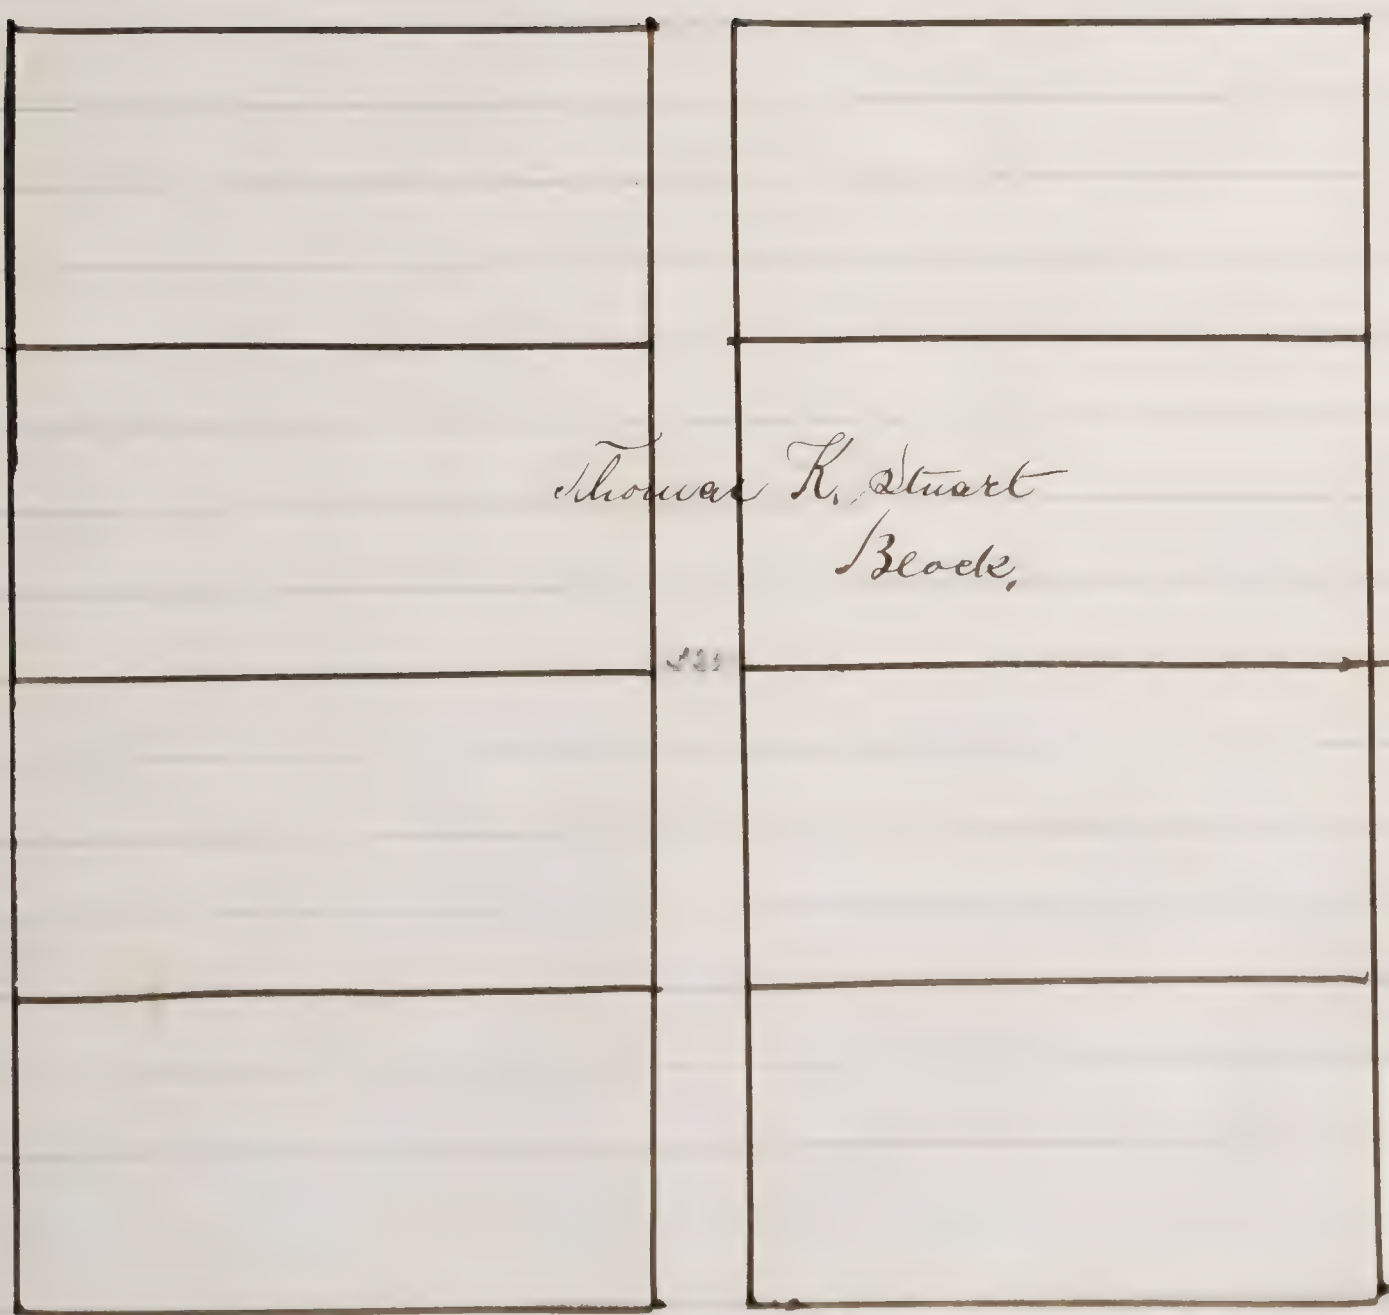 Thomas K. Stuart
Block,